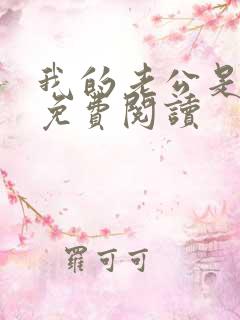 我的老公是
免費閱讀
羅可可